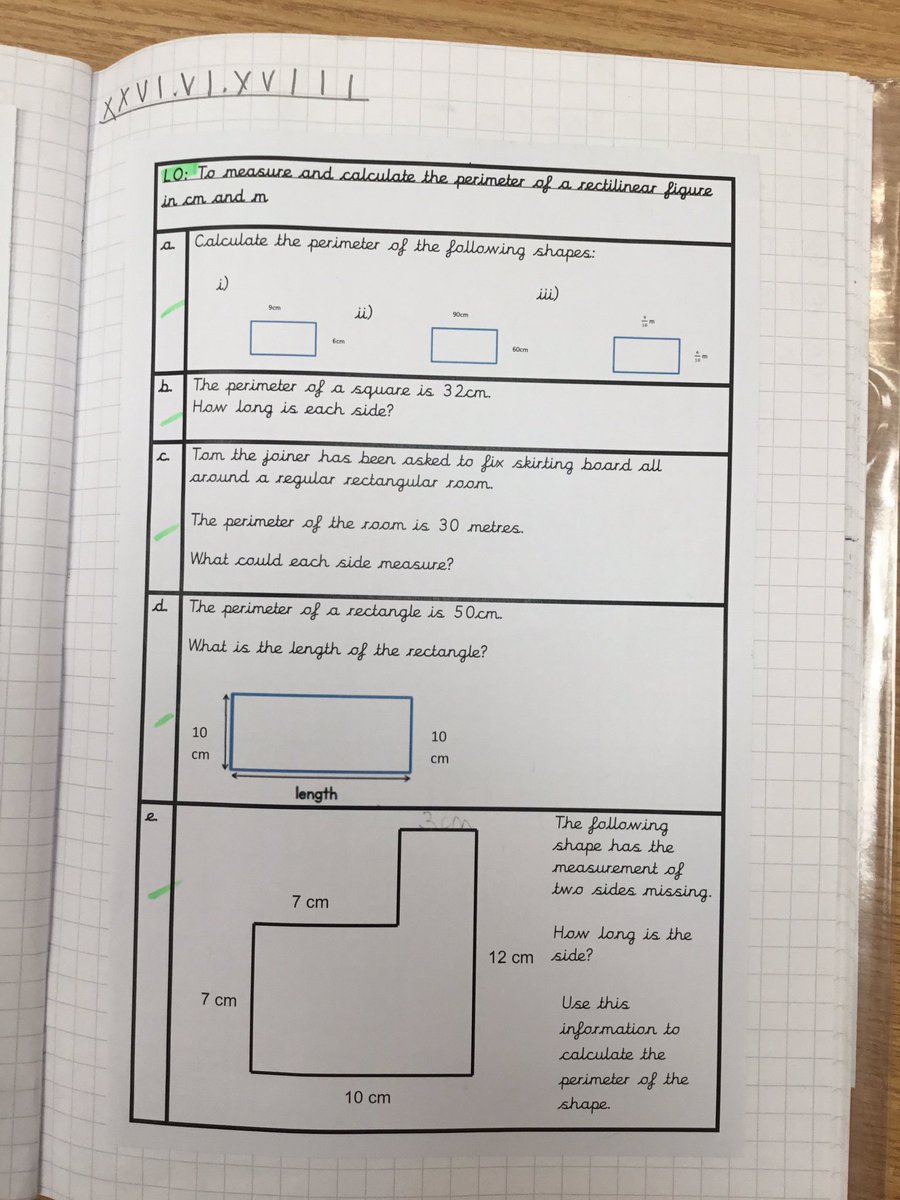 XXVI.VI.XVIII
LO: To measure and calculate the perimeter of a rectilinear figure
in cm and m
a. Calculate the perimeter of the following shapes:
i)
ii)
iii)
9cm
6cm
90cm
60cm
9/10 m
6/10 m
b. The perimeter of a square is 32cm.
How long is each side?
c. Tom the joiner has been asked to fix skirting board all
around a regular rectangular room.
The perimeter of the room is 30 metres.
What could each side measure?
d. The perimeter of a rectangle is 50cm.
What is the length of the rectangle?
10
cm
10
cm
length
e.
3cm
7 cm
7 cm
12 cm
10 cm
The following
shape has the
measurement of
two sides missing.
How long is the
side?
Use this
information to
calculate the
perimeter of the
shape.